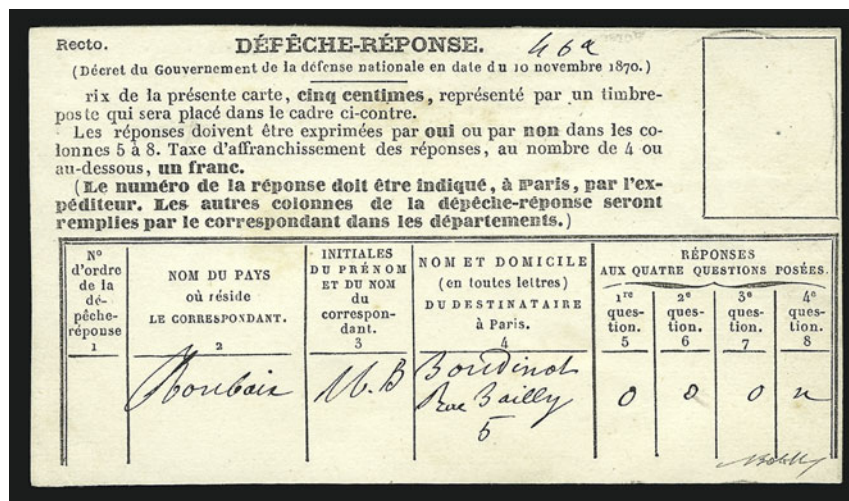 Recto. DÉFÊCHE-RÉPONSE. 46a
(Décret du Gouvernement de la défense nationale en date du 10 novembre 1870.)
rix de la présente carte, cinq centimes, représenté par un timbre-
poste qui sera placé dans le cadre ci-contre.
Les réponses doivent être exprimées par oui ou par non dans les co-
lonnes 5 à 8. Taxe d'affranchissement des réponses, au nombre de 4 ou
au-dessous, un franc.
(Le numéro de la réponse doit être indiqué, à Paris, par l'ex-
péditeur. Les autres colonnes de la dépêche-réponse seront
remplies par le correspondant dans les départements.)
N°
d'ordre
de la
dé-
pêche-
réponse
1
NOM DU PAYS
où réside
LE CORRESPONDANT.
2
INITIALES
DU PRÉNOM
ET DU NOM
du
correspon-
dant.
3
NOM ET DOMICILE
(en toutes lettres)
DU DESTINATAIRE
à Paris.
4
RÉPONSES
AUX QUATRE QUESTIONS POSÉES.
1re
ques-
tion.
5
2e
ques-
tion.
6
3e
ques-
tion.
7
4e
ques-
tion.
8
Roubaix
M.B
Boudinot
Rue Bailly
5
o
o
o
n